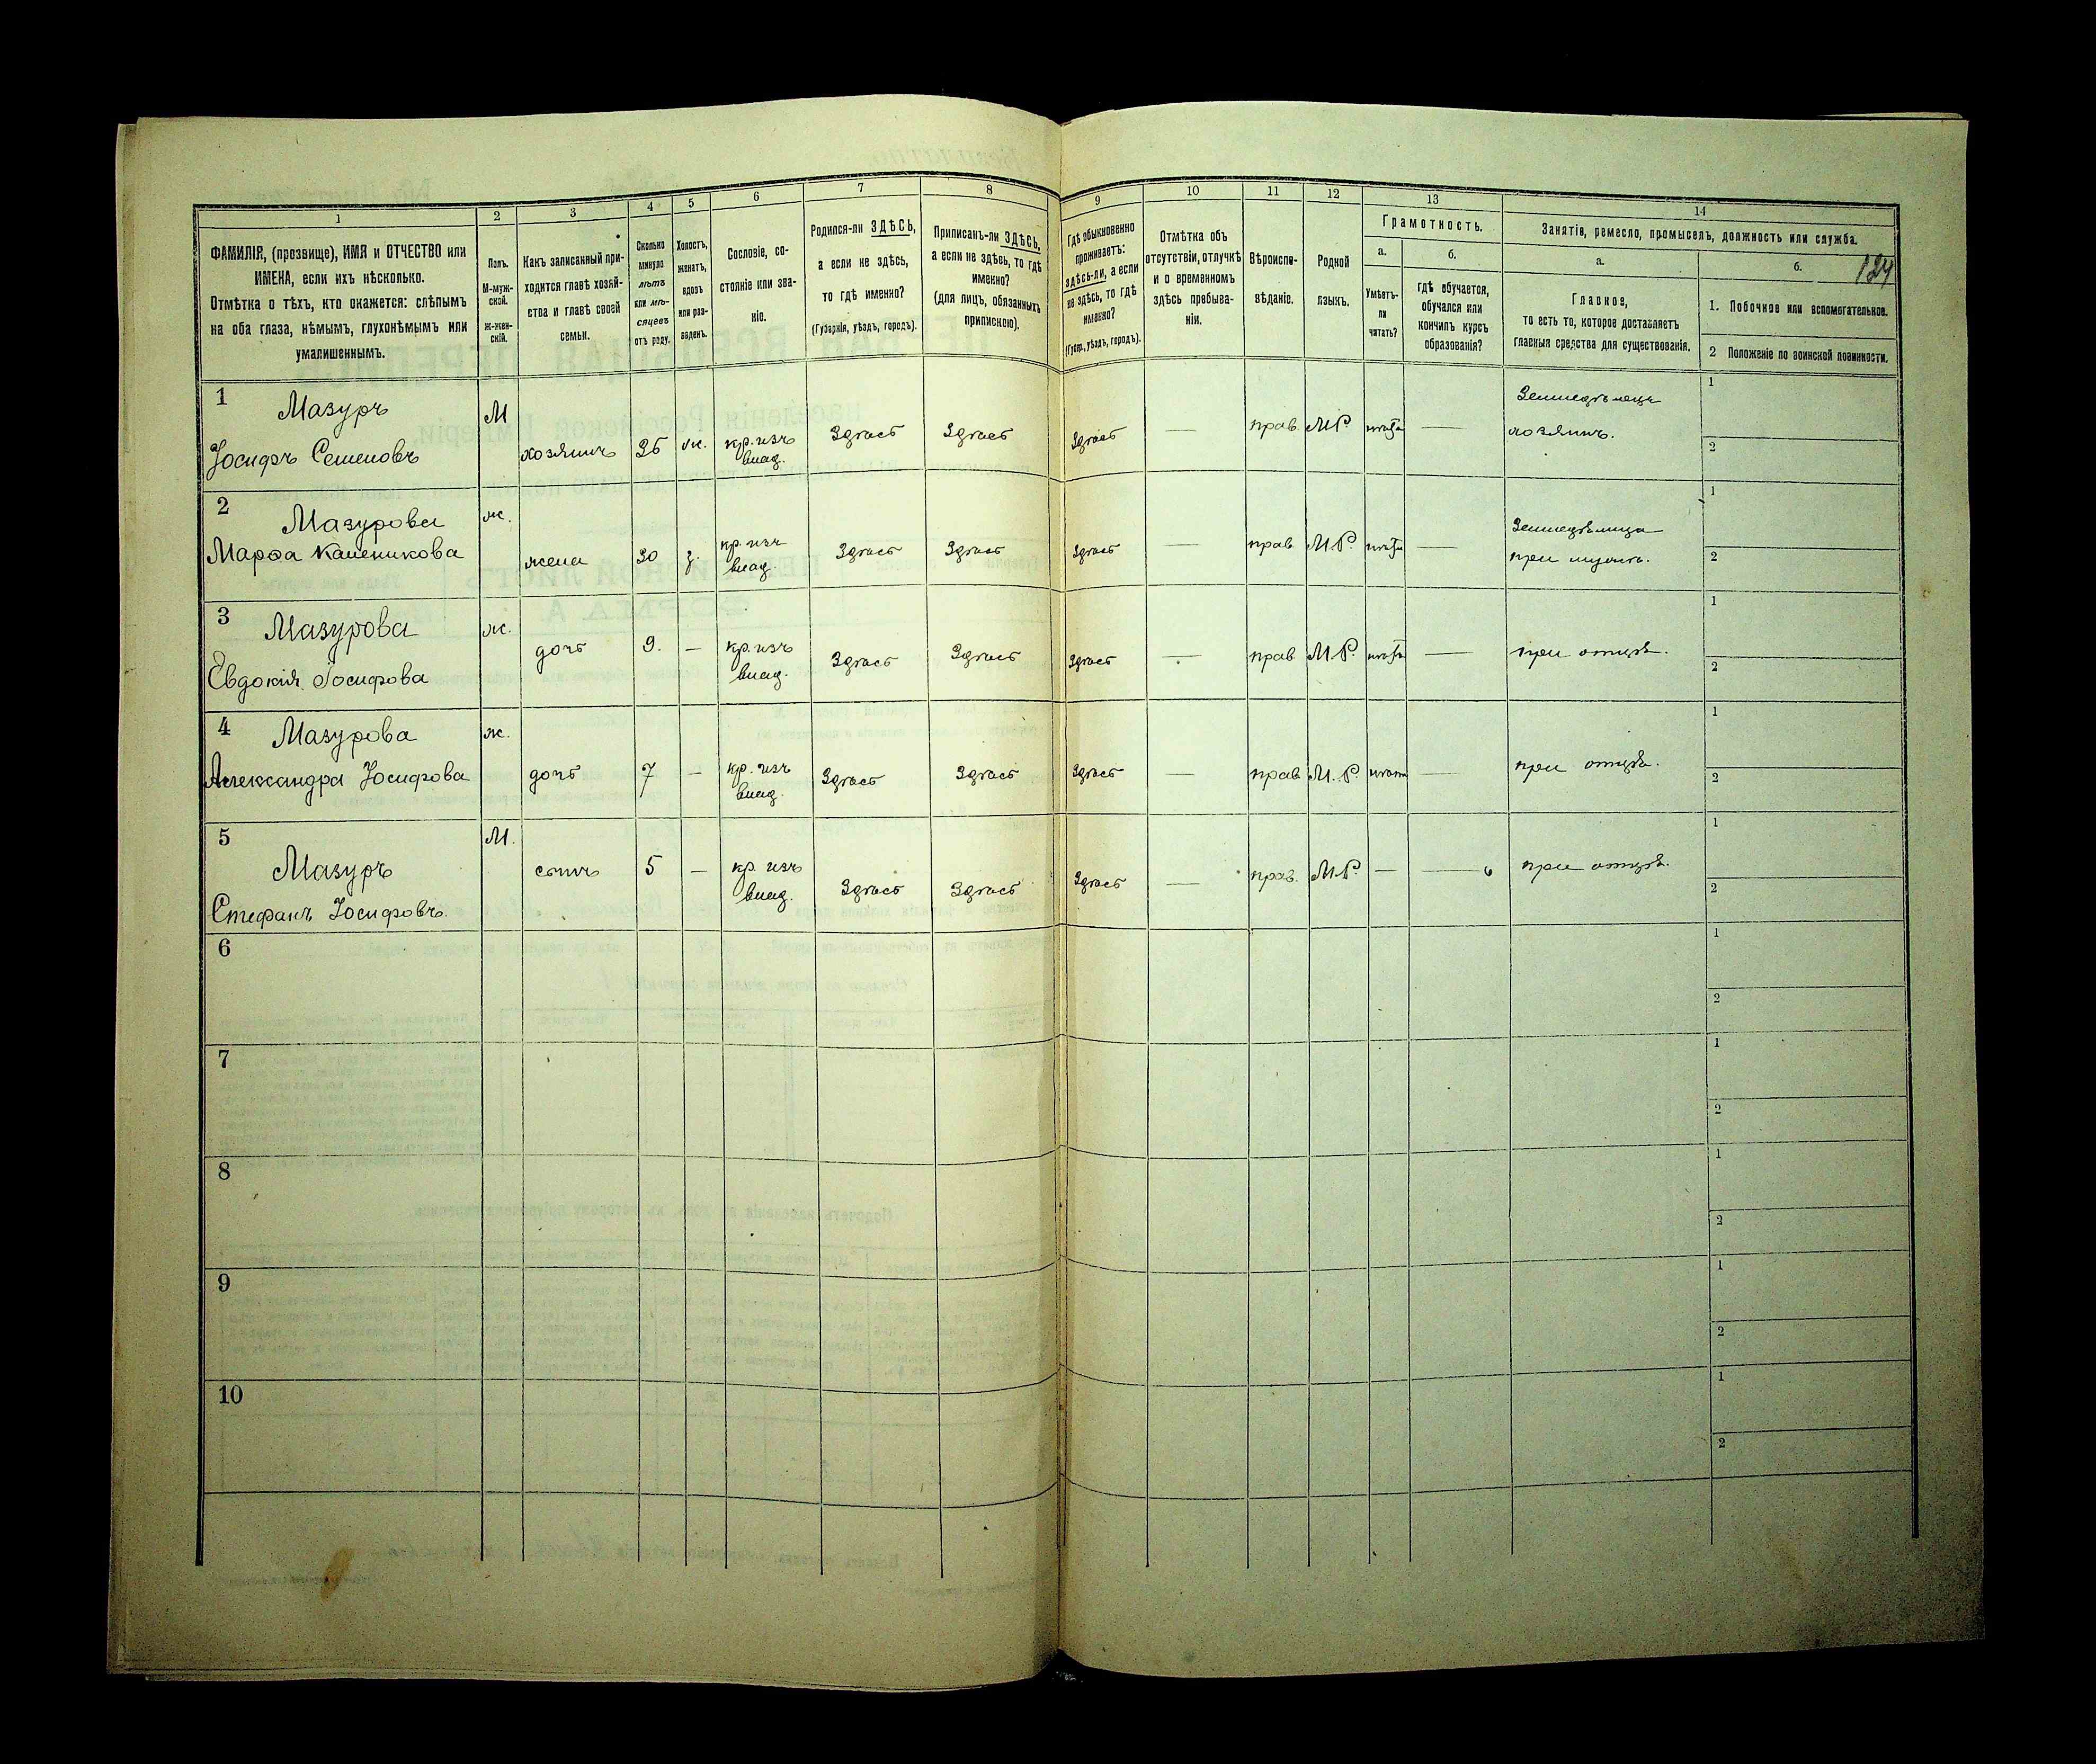 1
2
3
4
5
6
7
8
9
10
11
12
13
14
ФАМИЛІЯ, (прозвище), ИМЯ и ОТЧЕСТВО или
ИМЕНА, если ихъ нѣсколько.
Отмѣтка о тѣхъ, кто окажется: слѣпымъ
на оба глаза, нѣмымъ, глухонѣмымъ или
умалишеннымъ.
Полъ.
М-муж-
ской.
ж-жен-
скій.
Какъ записанный при-
ходится главѣ хозяй-
ства и главѣ своей
семьи.
Сколько
минуло
лѣтъ
или мѣ-
сяцевъ
отъ роду.
Холостъ,
женатъ,
вдовъ
или раз-
веденъ.
Сословіе, со-
стояніе или зва-
ніе.
Родился-ли ЗДѢСЬ,
а если не здѣсь,
то гдѣ именно?
(Губернія, уѣздъ, городъ).
Приписанъ-ли ЗДѢСЬ,
а если не здѣсь, то гдѣ
именно?
(для лицъ, обязанныхъ
припискою).
Гдѣ обыкновенно
проживаетъ:
здѣсь-ли, а если
не здѣсь, то гдѣ
именно?
(Губер., уѣздъ, городъ).
Отмѣтка объ
отсутствіи, отлучкѣ
и о временномъ
здѣсь пребыва-
ніи.
Вѣроиспо-
вѣданіе.
Родной
языкъ.
Грамотность.
а.
Умѣетъ-
ли
читать?
б.
гдѣ обучается,
обучался или
кончилъ курсъ
образованія?
Занятія, ремесло, промыселъ, должность или служба.
а.
Главное,
то есть то, которое доставляетъ
главныя средства для существованія.
б.
124
1. Побочное или вспомогательное.
2 Положеніе по воинской повинности.
1 Мазуръ
Іосифъ Семеновъ
М
хозяинъ
ж.
кр. изъ
влад.
Здѣсь
Здѣсь
Здѣсь
—
прав.
М.Р.
—
Земледѣлецъ
хозяинъ.
1
2
2 Мазурова
Марфа
ж.
жена
30
з.
кр. изъ
влад.
Здѣсь
Здѣсь
Здѣсь
—
прав.
М.Р.
—
при мужѣ.
1
2
3 Мазурова
Евдокія Іосифова
ж.
дочь
9.
—
кр. изъ
влад.
Здѣсь
Здѣсь
Здѣсь
—
прав
М.Р.
—
при отцѣ.
1
2
4 Мазурова
Александра Іосифова
ж.
дочь
7
—
кр. изъ
влад.
Здѣсь
Здѣсь
Здѣсь
—
прав
М.Р
—
при отцѣ.
1
2
5 Мазуръ
Стефанъ Іосифовъ.
М.
сынъ
5
—
кр. изъ
влад.
Здѣсь
Здѣсь
Здѣсь
—
прав.
М.Р.
—
—
при отцѣ.
1
2
6
1
2
7
1
2
8
1
2
9
1
2
10
1
2